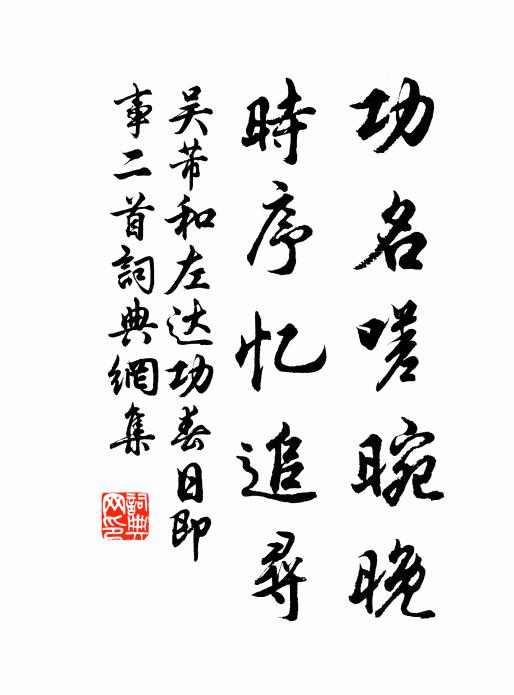 功名嗟晼晚
时序忆追寻
吴芾和左达功春日即
事二首詞典網集
詞典
网印